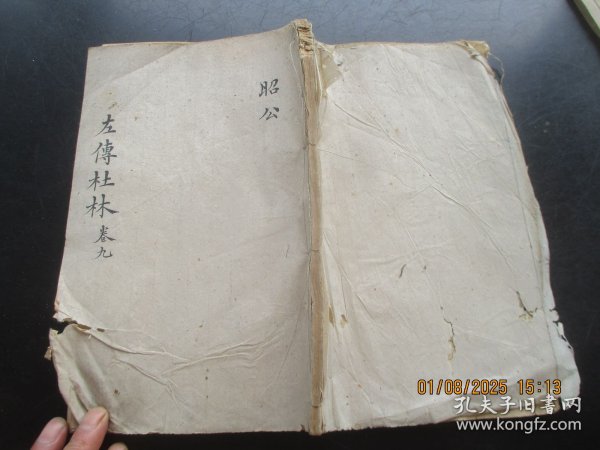 昭公
左傳杜林 卷九
01/08/2025 15:13
孔夫子旧书网
www.kongfz.com